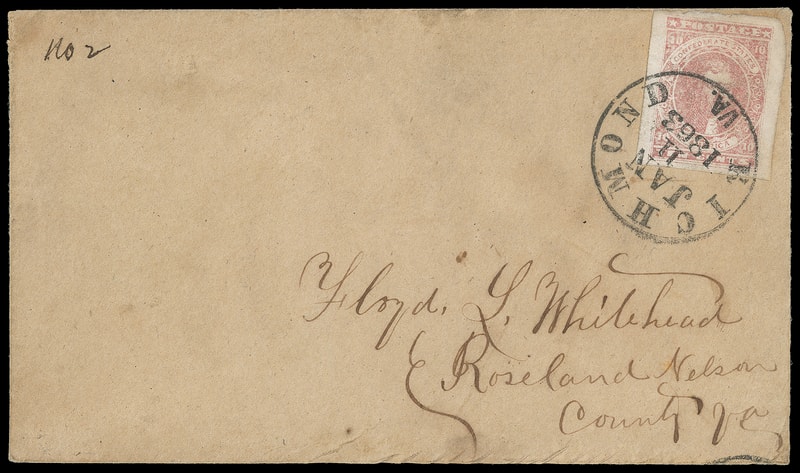 No 2
POSTAGE
10 10
CONFEDERATE STATES
RICHMOND VA.
JAN
11
1863
Floyd. L. Whitehead
Roseland Nelson
County Va